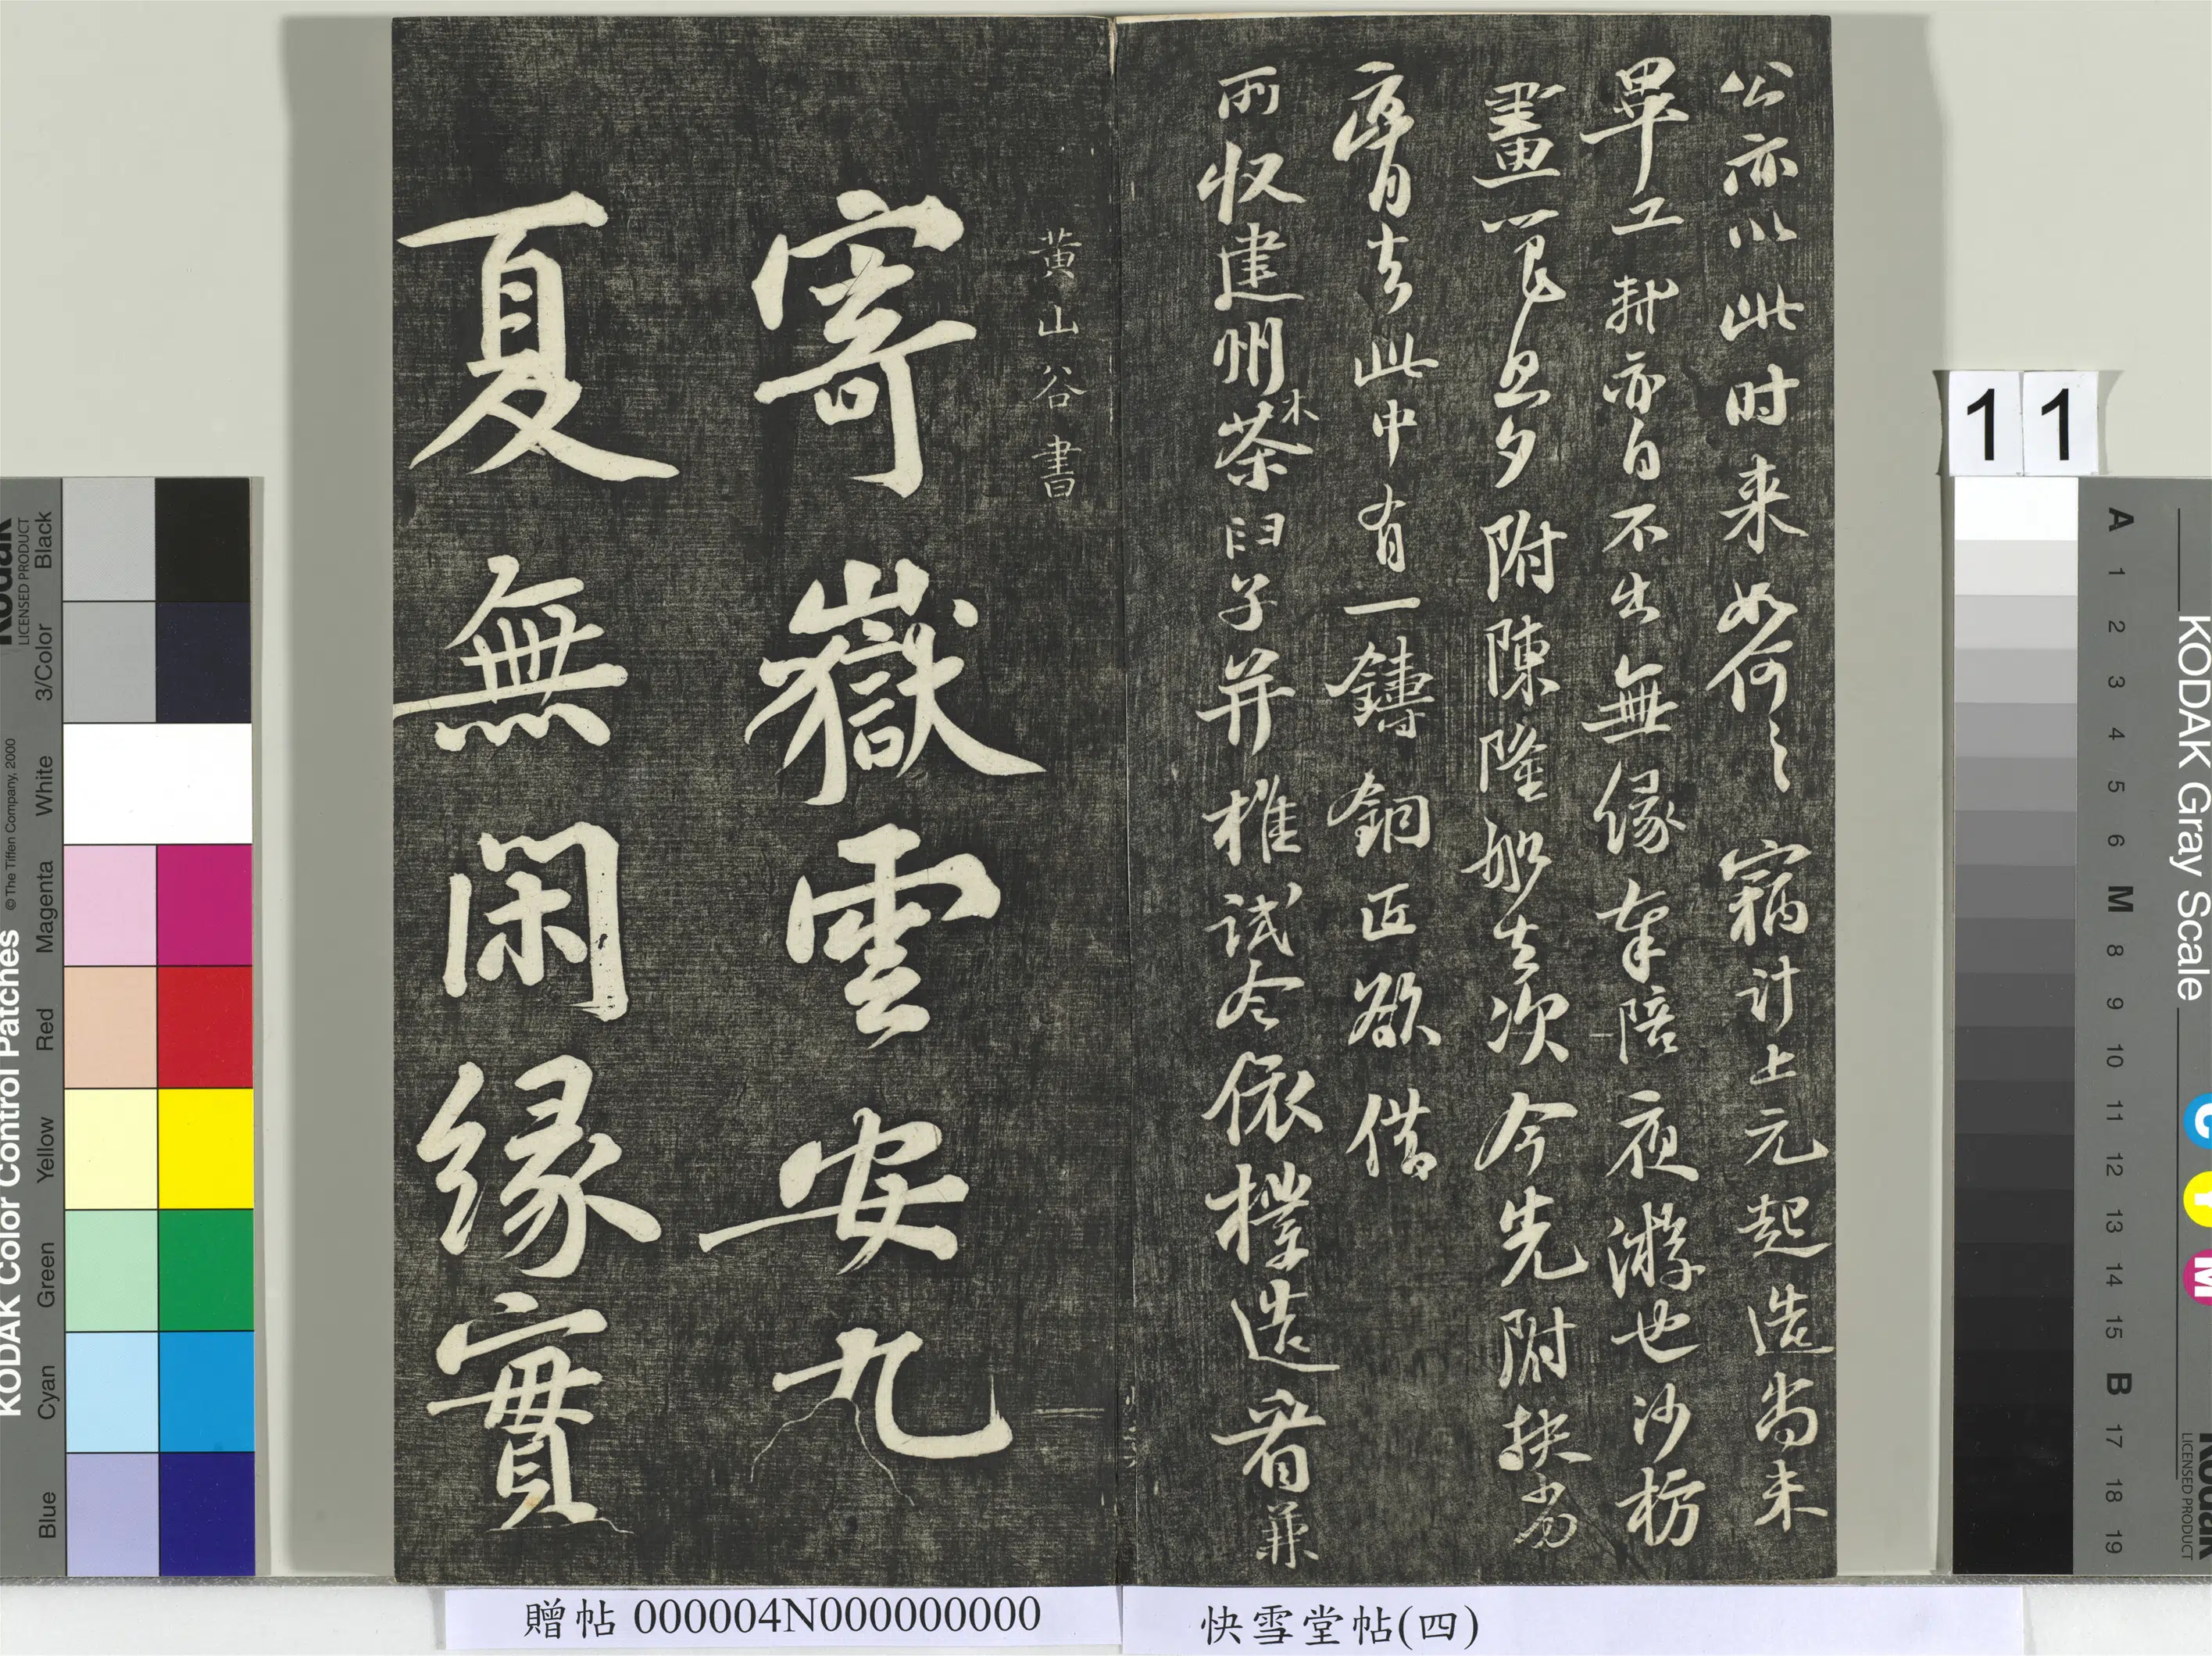 公亦以此时来如何々窃计上元起造尚未
畢工轼亦自不出無缘奉陪夜游也沙枋
畫笼旦夕附陳隆船去次今先附扶劣
膏去此中有一鑄銅匠欲借
所収建州木茶臼子并椎試令依樣造看兼
黄山谷書
寄嶽雲安九
夏無閑緣實
11
快雪堂帖(四)
贈帖 000004N000000000
KODAK Color Control Patches
© The Tiffen Company, 2000
Kodak
LICENSED PRODUCT
Black
3/Color
White
Magenta
Red
Yellow
Green
Cyan
Blue
KODAK Gray Scale
C
Y
M
Kodak
LICENSED PRODUCT
A
1
2
3
4
5
6
M
8
9
10
11
12
13
14
15
B
17
18
19